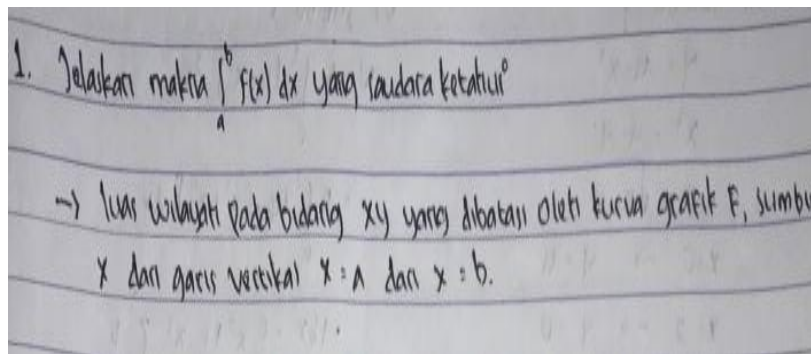 1. Jelaskan makna ∫ₐᵇ f(x) dx yang saudara ketahui
→ luas wilayah pada bidang xy yang dibatasi oleh kurva grafik F, sumbu
x dan garis vertikal x = a dan x = b.